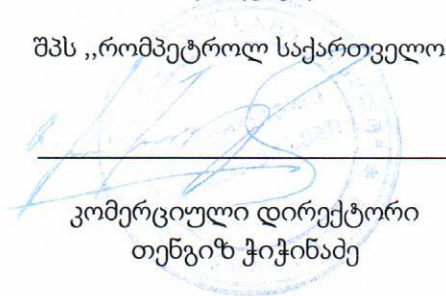 შპს ,,რომპეტროლ საქართველო
კომერციული დირექტორი
თენგიზ ჭიჭინაძე